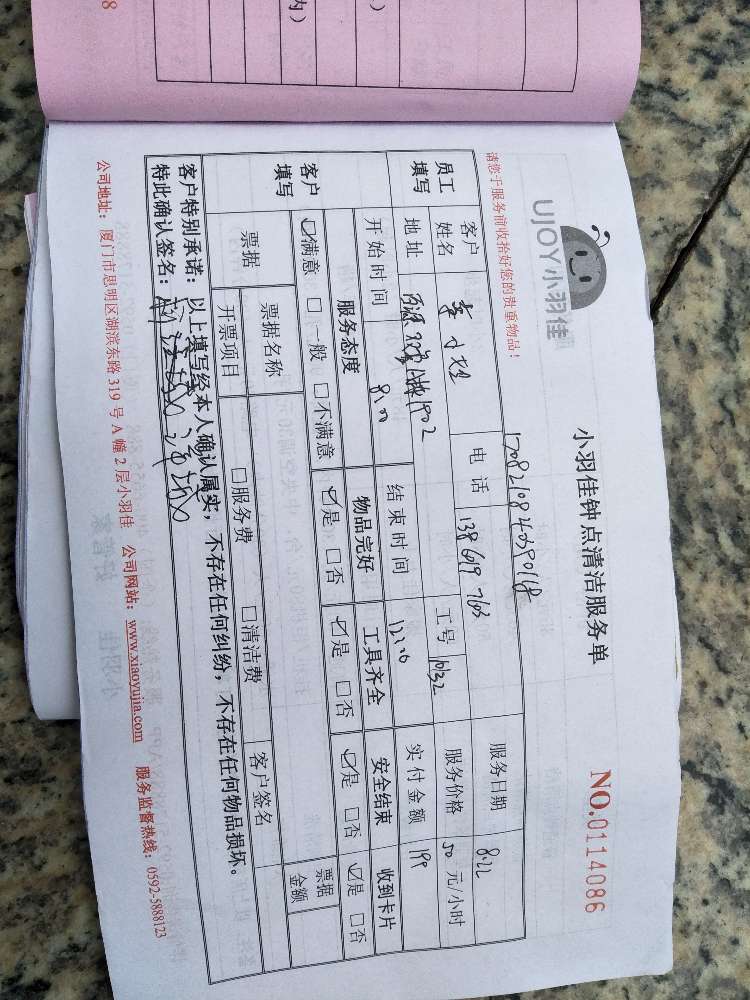 UJOY小羽佳
小羽佳钟点清洁服务单
NO.0114086
请您于服务前收拾好您的贵重物品!
员工
填写
客户
姓名
李小姐
电话
工号
1032
服务日期
8.22
服务价格
50 元/小时
地址
1902
开始时间
8:00
结束时间
12:00
实付金额
199
客户
填写
服务态度
物品完好
工具齐全
安全结束
收到卡片
☑满意 □一般 □不满意
☑是 □否
☑是 □否
☑是 □否
☑是 □否
票据
票据名称
开票项目
□服务费 □清洁费
客户签名
票据
金额
客户特别承诺:以上填写经本人确认属实,不存在任何纠纷,不存在任何物品损坏。
特此确认签名:
公司地址:厦门市思明区湖滨东路 319 号 A 幢 2 层小羽佳 公司网站:www.xiaoyujia.com 服务监督热线:0592-5888123